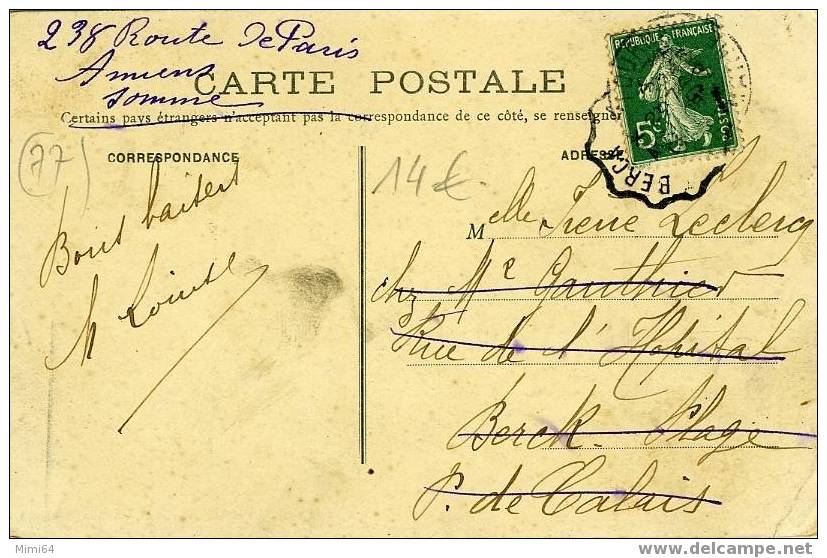 238 Route de Paris
Amiens
Somme
CARTE POSTALE
Certains pays étrangers n'acceptant pas la correspondance de ce côté, se renseigner
77
CORRESPONDANCE
ADRESSE
14€
REPUBLIQUE FRANÇAISE
5c
BERCK
Bons baisers
M Louise
Melle Irene Leclercq
chez Mr Gauthier
Rue de l'Hopital
Berck Plage
P. de Calais
Mimi64
delcampe.net